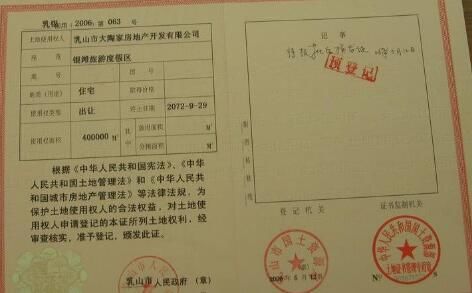 乳国用（2006）第 063 号
土地使用权人 乳山市大陶家房地产开发有限公司
座落 银滩旅游度假区
地号 图号
地类（用途） 住宅 取得价格
使用权类型 出让 终止日期 2072-9-29
使用权面积 400000 M² 其中 独用面积 M²
分摊面积 M²
根据《中华人民共和国宪法》、《中华
人民共和国土地管理法》和《中华人民共
和国城市房地产管理法》等法律法规，为
保护土地使用权人的合法权益，对土地使
用权人申请登记的本证所列土地权利，经
审查核实，准予登记，颁发此证。
乳山市人民政府（章）
记事
预登记
登记机关 证书监制机关
山市国土资源
2006年5月12日
中华人民共和国国土资源部
土地证书管理专用章
№